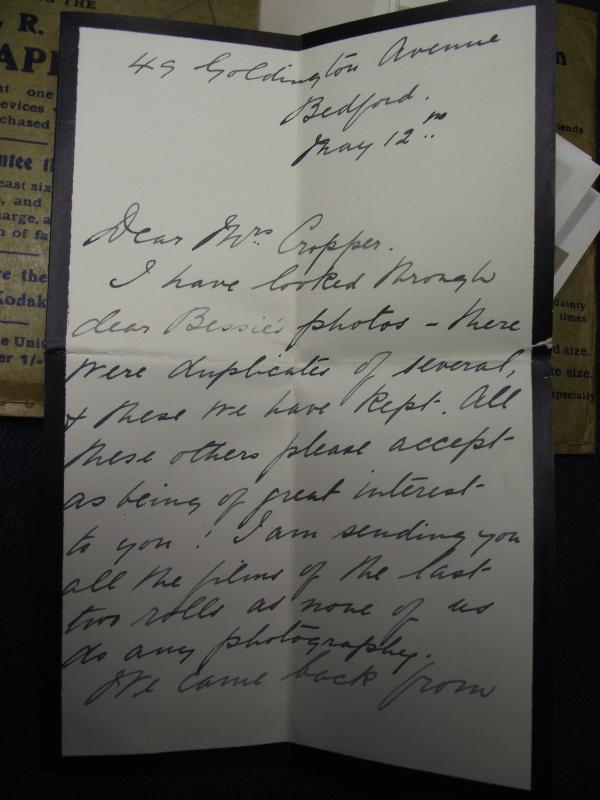 49 Goldington Avenue
Bedford.
May 12th
Dear Mrs. Cropper.
I have looked through
dear Bessie's photos - there
were duplicates of several,
& these we have kept. All
these others please accept
as being of great interest
to you! I am sending you
all the films of the last
two rolls as none of us
do any photography.
We came back from
THE
R.
one
evices
chased
east six
and
harge, a
n of fa
e the
Kodak
ends
dainty
times
d size.
te size.
especially